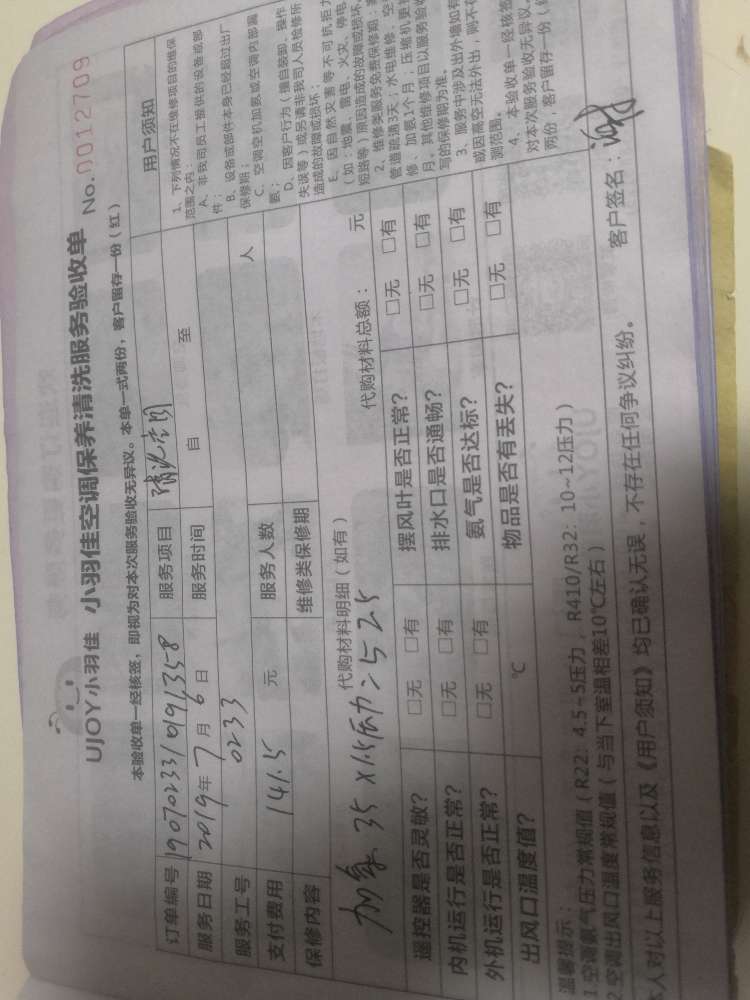 UJOY小羽佳 小羽佳空调保养清洗服务验收单 No.0012709
本验收单一经核签，即视为对本次服务验收无异议。本单一式两份，客户留存一份（红）
订单编号 服务项目 清洗空调
服务日期 2019年7月6日 服务时间 自 至
服务工号 0233
支付费用 141.5 元 服务人数 人
保修内容 维修类保修期
代购材料明细（如有） 代购材料总额： 元
加氟 35×1.5压力=52.5
遥控器是否灵敏？ □无 □有 摆风叶是否正常？ □无 □有
内机运行是否正常？ □无 □有 排水口是否通畅？ □无 □有
外机运行是否正常？ □无 □有 氨气是否达标？ □无 □有
出风口温度值？ ℃ 物品是否有丢失？ □无 □有
用户须知
1、下列情况不在维修项目的维保
范围之内：
A、非我司员工提供的设备或部
件；
B、设备或部件本身已经超过出厂
保修期；
C、空调空机加氨或空调内部漏
氨；
D、因客户行为（擅自装卸、操作
失误等）或另请非我司人员检修所
造成的故障或损坏；
E、因自然灾害等不可抗拒力
（如：地震、雷电、火灾、停电
短路等）原因造成的故障或损坏
2、维修类服务免费保修期：
管道疏通3天；水电维修、空
修、加氨1个月；压缩机更换
月，其他维修项目以服务验收
写的保修期为准。
3、服务中涉及出外墙如有
或因高空无法外出，则不在
测范围。
4、本验收单一经核签
对本次服务验收无异议。
两份，客户留存一份（红
温馨提示：
1.空调氨气压力常规值（R22：4.5~5压力，R410/R32：10~12压力）
空调出风口温度常规值（与当下室温相差10℃左右）
本人对以上服务信息以及《用户须知》均已确认无误，不存在任何争议纠纷。
客户签名：